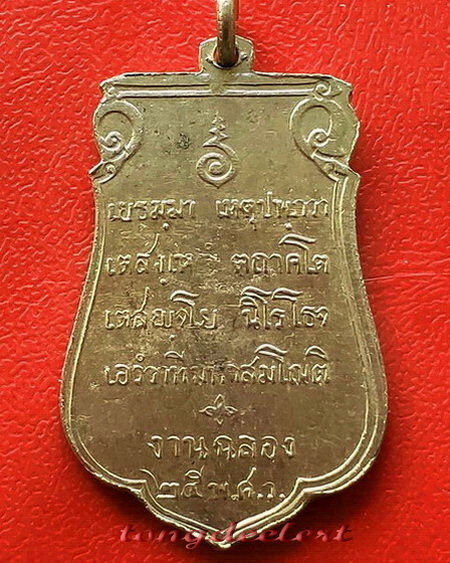 เยธมฺมา เหตุปฺปภวา
เตสํ เหตุํ ตถาคโต
เตสญฺจ โย นิโรโธ จ
เอวํวาที มหาสมโณติ
งานฉลอง
๒๕ พ.ศ.ว.
tongdeelert